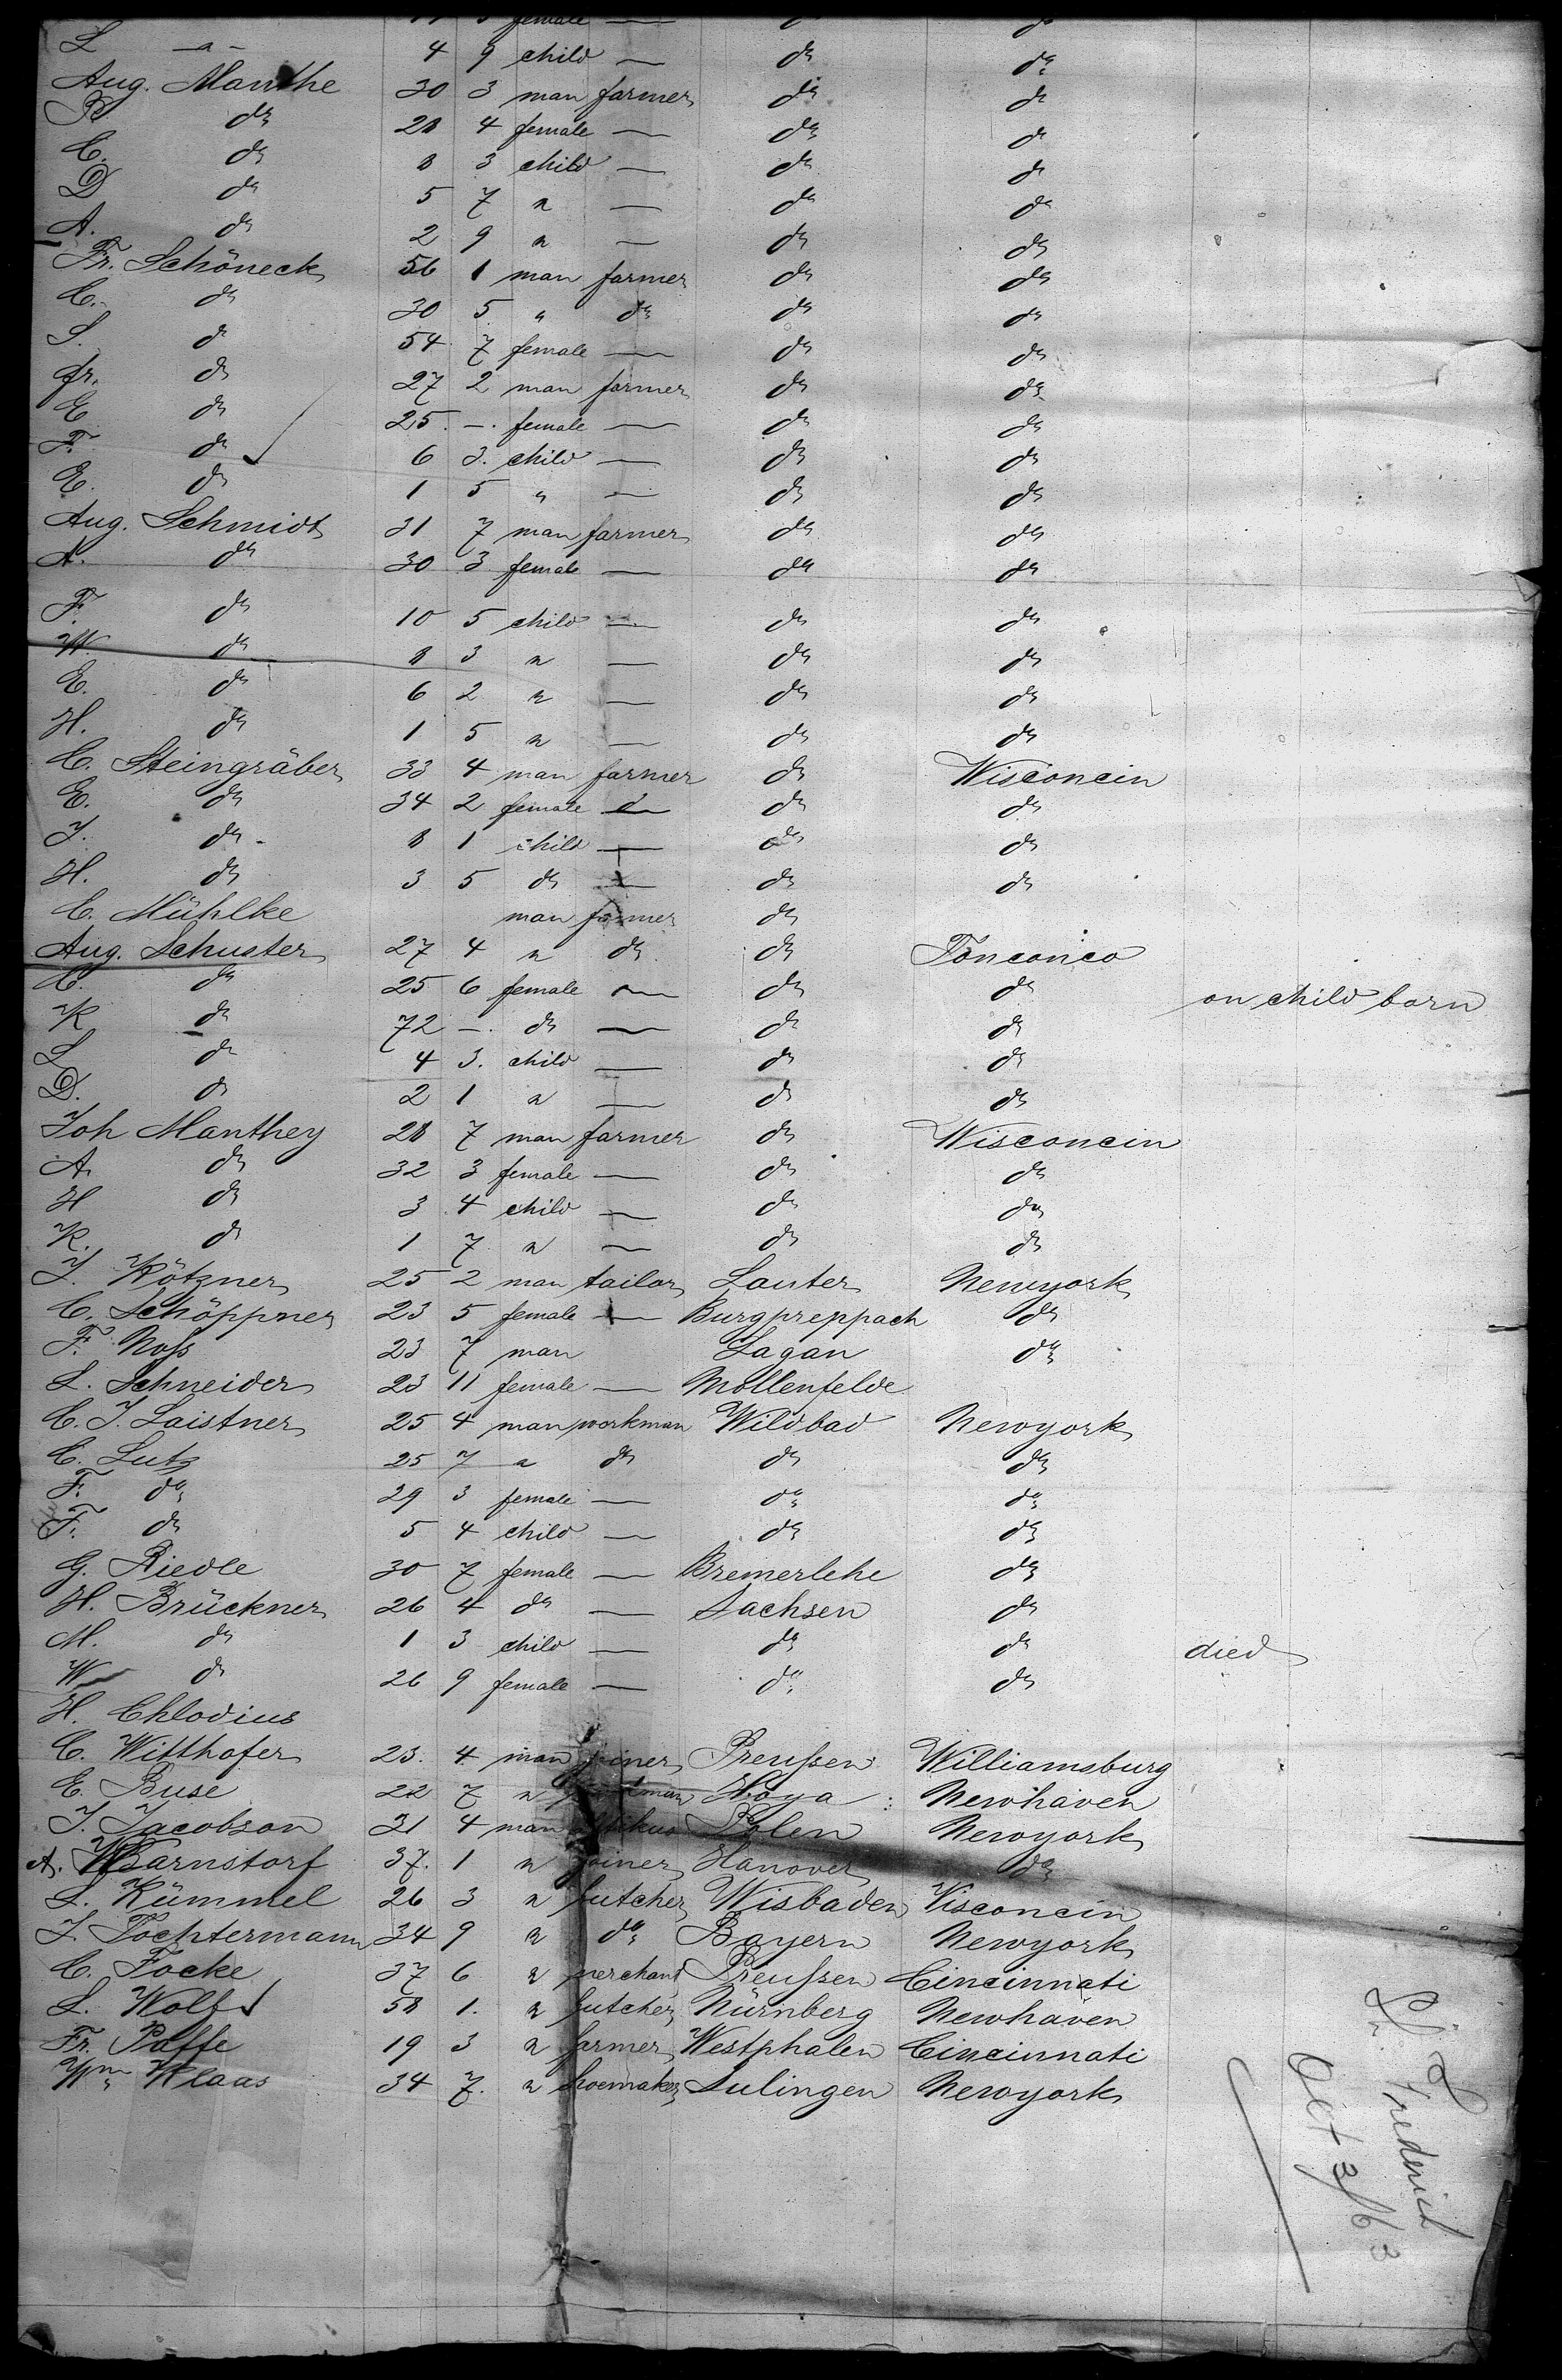 female — do do
L — a — 4 9 child — do do
Aug. Manthe 30 3 man farmer do do
R do 28 4 female — do do
C. do 8 3 child — do do
D do 5 7 " — do do
A. do 2 9 " — do do
Fr. Schöneck 56 1 man farmer do do
C. do 30 5 " do do do
S. do 54 7 female — do do
fr. do 27 2 man farmer do do
E do 25. -. female — do do
F. do 6 3. child — do do
E. do 1 5 " — do do
Aug. Schmidt 31 7 man farmer do do
A. do 30 3 female — do do
F. do 10 5 child — do do
W. do 8 3 " — do do
E. do 6 2 " — do do
H. do 1 5 " — do do
C. Steingräber 33 4 man farmer do Wisconcin
E. do 34 2 female — do do
J. do 8 1 child — do do
H. do 3 5 do — do do
C. Mühlke man farmer do
Aug. Schuster 27 4 " do do Fonconco
C. do 25 6 female — do do on child born
K do 72 -. do — do do
L do 4 3. child — do do
D. do 2 1 " — do do
Joh Manthey 28 7 man farmer do Wisconcin
A. do 32 3 female — do do
H do 3 4 child — do do
K. do 1 7 " — do do
J. Kötzner 25 2 man tailor Lauter Newyork
C. Schöppner 23 5 female — Burgpreppach do
F. Noss 23 7 man Sagan do
L. Schneider 23 11 female — Mollenfelde
C. J. Laistner 25 4 man workman Wildbad Newyork
C. Lutz 25 7 " do do do
F. do 29 3 female — do do
F. do 5 4 child — do do
G. Riedle 30 7 female — Bremerlehe do
H. Brückner 26 4 do — Sachsen do
M. do 1 3 child — do do died
W do 26 9 female — do do
H. Chlodius
C. Witthofer 23. 4 man joiner Preussen Williamsburg
E. Buse 22 7 " Hoya : Newhaven
J. Jacobson 31 4 man Polen Newyork
A. Barnstorf 37. 1 " joiner Hanover do
L. Kümmel 26 3 " butcher Wisbaden Visconcin
J. Tochtermann 34 9 " do Bayern Newyork
C. Focke 37 6 " merchant Preussen Cincinnati
L. Wolf 58 1. " butcher Nürnberg Newhaven
Fr. Paffe 19 3 " farmer Westphalen Cincinnati
Wm Klaas 34 7. " shoemaker Sulingen Newyork
Frederich
Oct 3/63